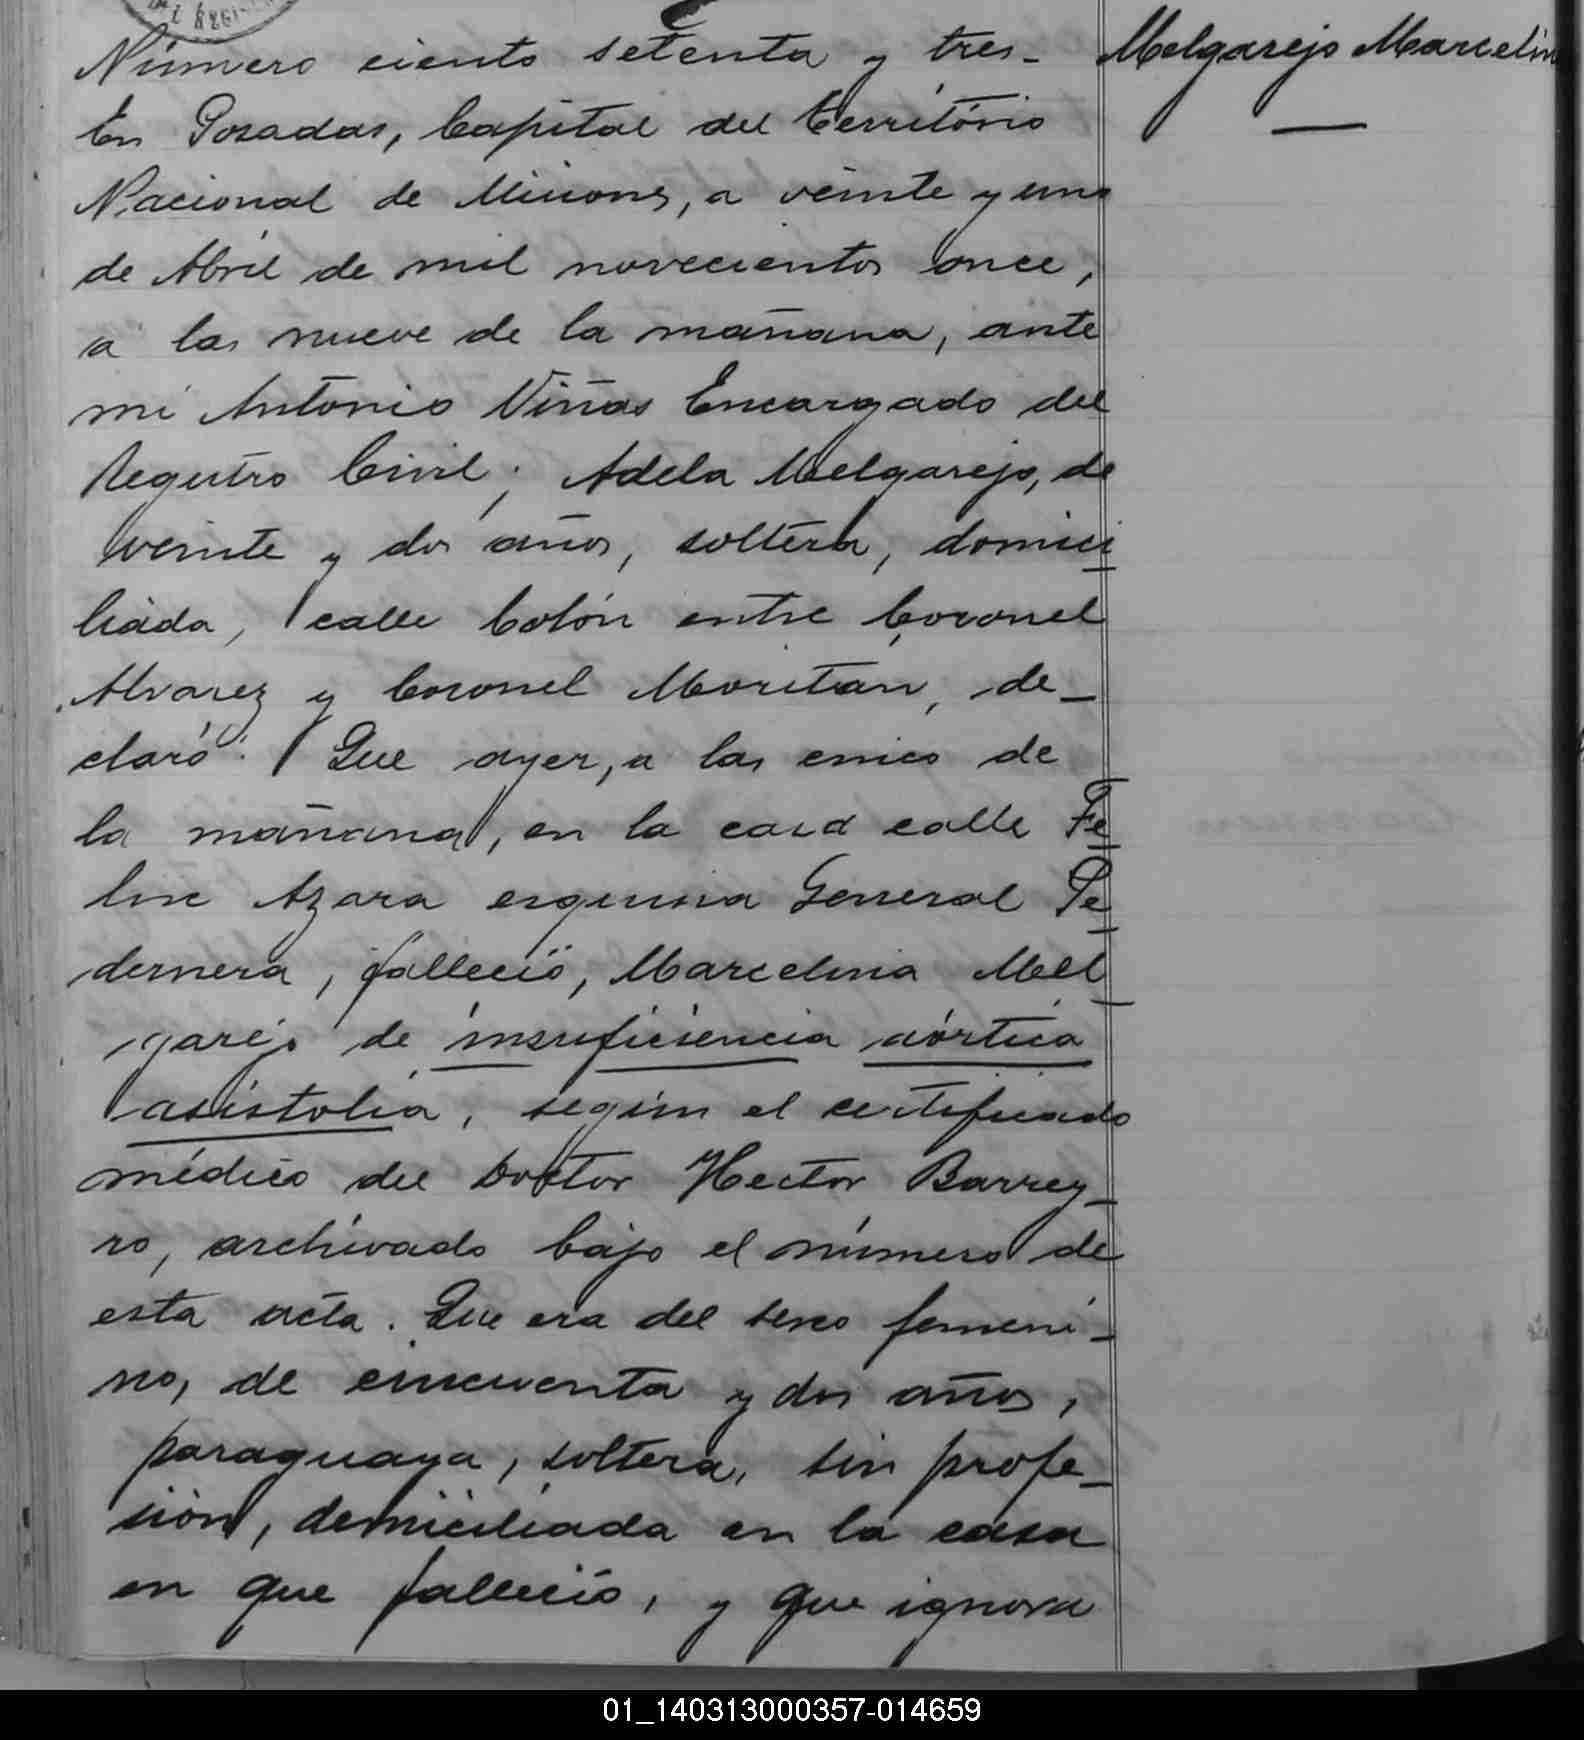 Número ciento setenta y tres_
Melgarejo Marcelin
En Posadas, Capital del Território
Nacional de Misiones, a veinte y uno
de Abril de mil novecientos once,
a las nueve de la mañana, ante
mi Antonio Viñas Encargado del
Registro Civil; Adela Melgarejo, de
veinte y dos años, soltera, domici
liada, calle Colón entre Coronel
Alvarez y Coronel Moritán, de_
claró: Que ayer, a las cinco de
la mañana, en la casa calle Fe
lix Azara esquina General Pe
dernera, falleció, Marcelina Mel
garejo de insuficiencia aórtica
asistolia, según el certificado
médico del Doctor Hector Barrey_
ro, archivado bajo el número de
esta acta. Que era del sexo femeni_
no, de cincuenta y dos años,
paraguaya, soltera, sin profe_
sión, domiciliada en la casa
en que falleció, y que ignora
01_140313000357-014659